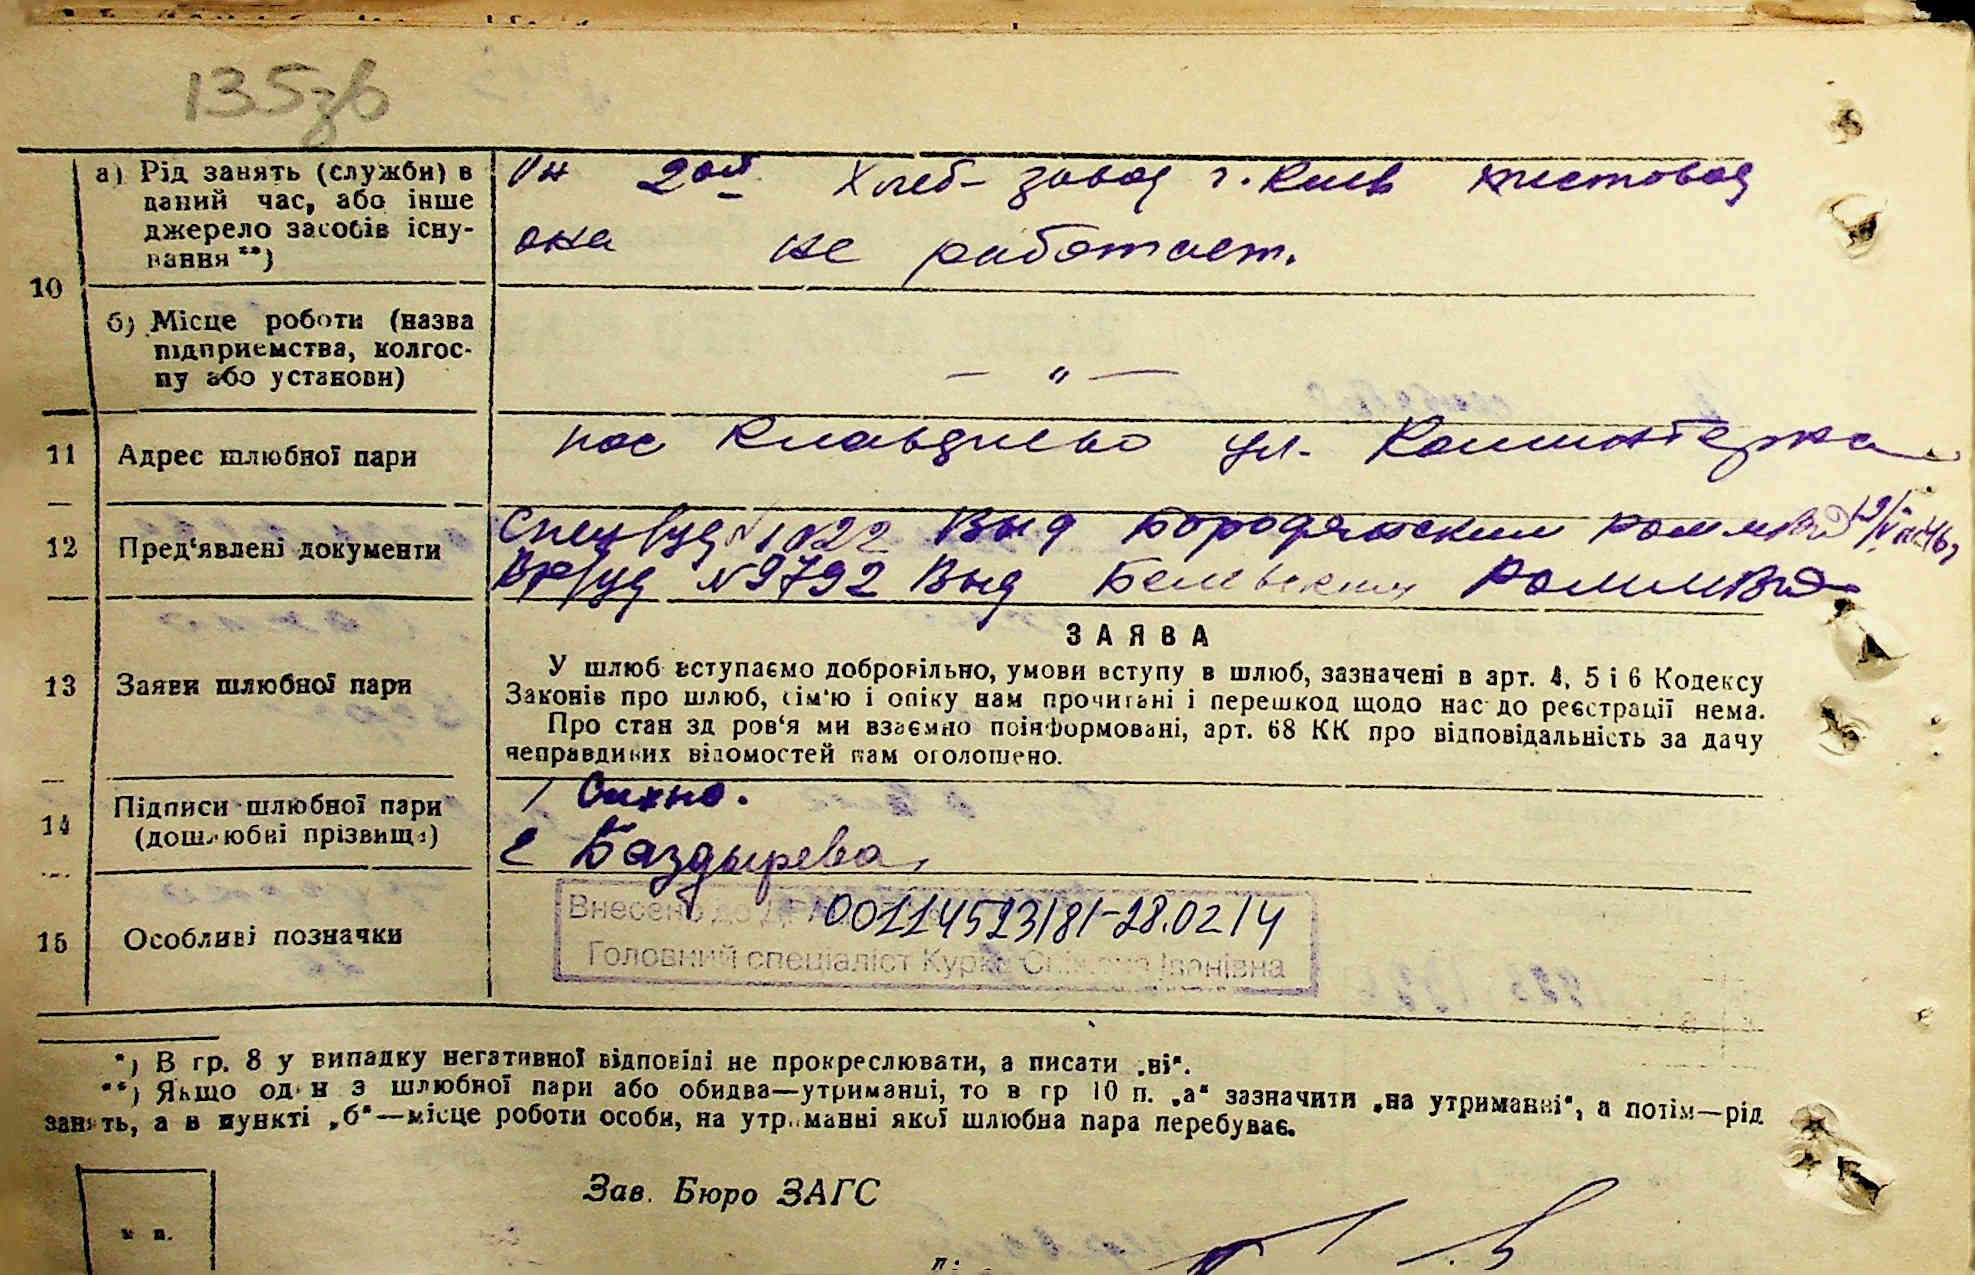 135зв
10
а) Рід занять (служби) в
даний час, або інше
джерело засобів існу-
вання **)
Он 2ой Хлеб-завод г. Киев тестовод
она не работает.
б) Місце роботи (назва
підприємства, колгос-
пу або установи)
— " —
11 Адрес шлюбної пари
пос Клавдиево ул. Коминтерна
12 Пред‘явлені документи
№ 1022 Выд Бородянским
№ 9792 Выд
13 Заяви шлюбної пари
ЗАЯВА
У шлюб вступаємо добровільно, умови вступу в шлюб, зазначені в арт. 4, 5 і 6 Кодексу
Законів про шлюб, сім‘ю і опіку нам прочитані і перешкод щодо нас до реєстрації нема.
Про стан здоров‘я ми взаємно поінформовані, арт. 68 КК про відповідальність за дачу
неправдивих відомостей нам оголошено.
14 Підписи шлюбної пари
(дошлюбні прізвища)
1 Сихно.
2 Баздырева
15 Особливі позначки
Внесено до 00114523181-28.02.14
Головний спеціаліст Курка Іванівна
*) В гр. 8 у випадку негативної відповіді не прокреслювати, а писати „ні“.
**) Якщо один з шлюбної пари або обидва—утриманці, то в гр 10 п. „а“ зазначити „на утриманні“, а потім—рід
занять, а в пункті „б“—місце роботи особи, на утриманні якої шлюбна пара перебуває.
Зав. Бюро ЗАГС
м п.